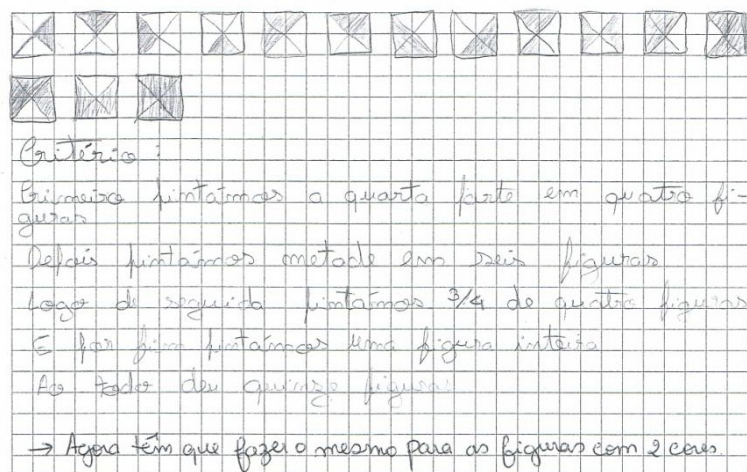 Critério:
Primeiro pintámos a quarta parte em quatro fi-
guras
Depois pintámos metade em seis figuras
Logo de seguida pintámos 3/4 de quatro figuras
E por fim pintámos uma figura inteira
Ao todo deu quinze figuras
→ Agora têm que fazer o mesmo para as figuras com 2 cores.